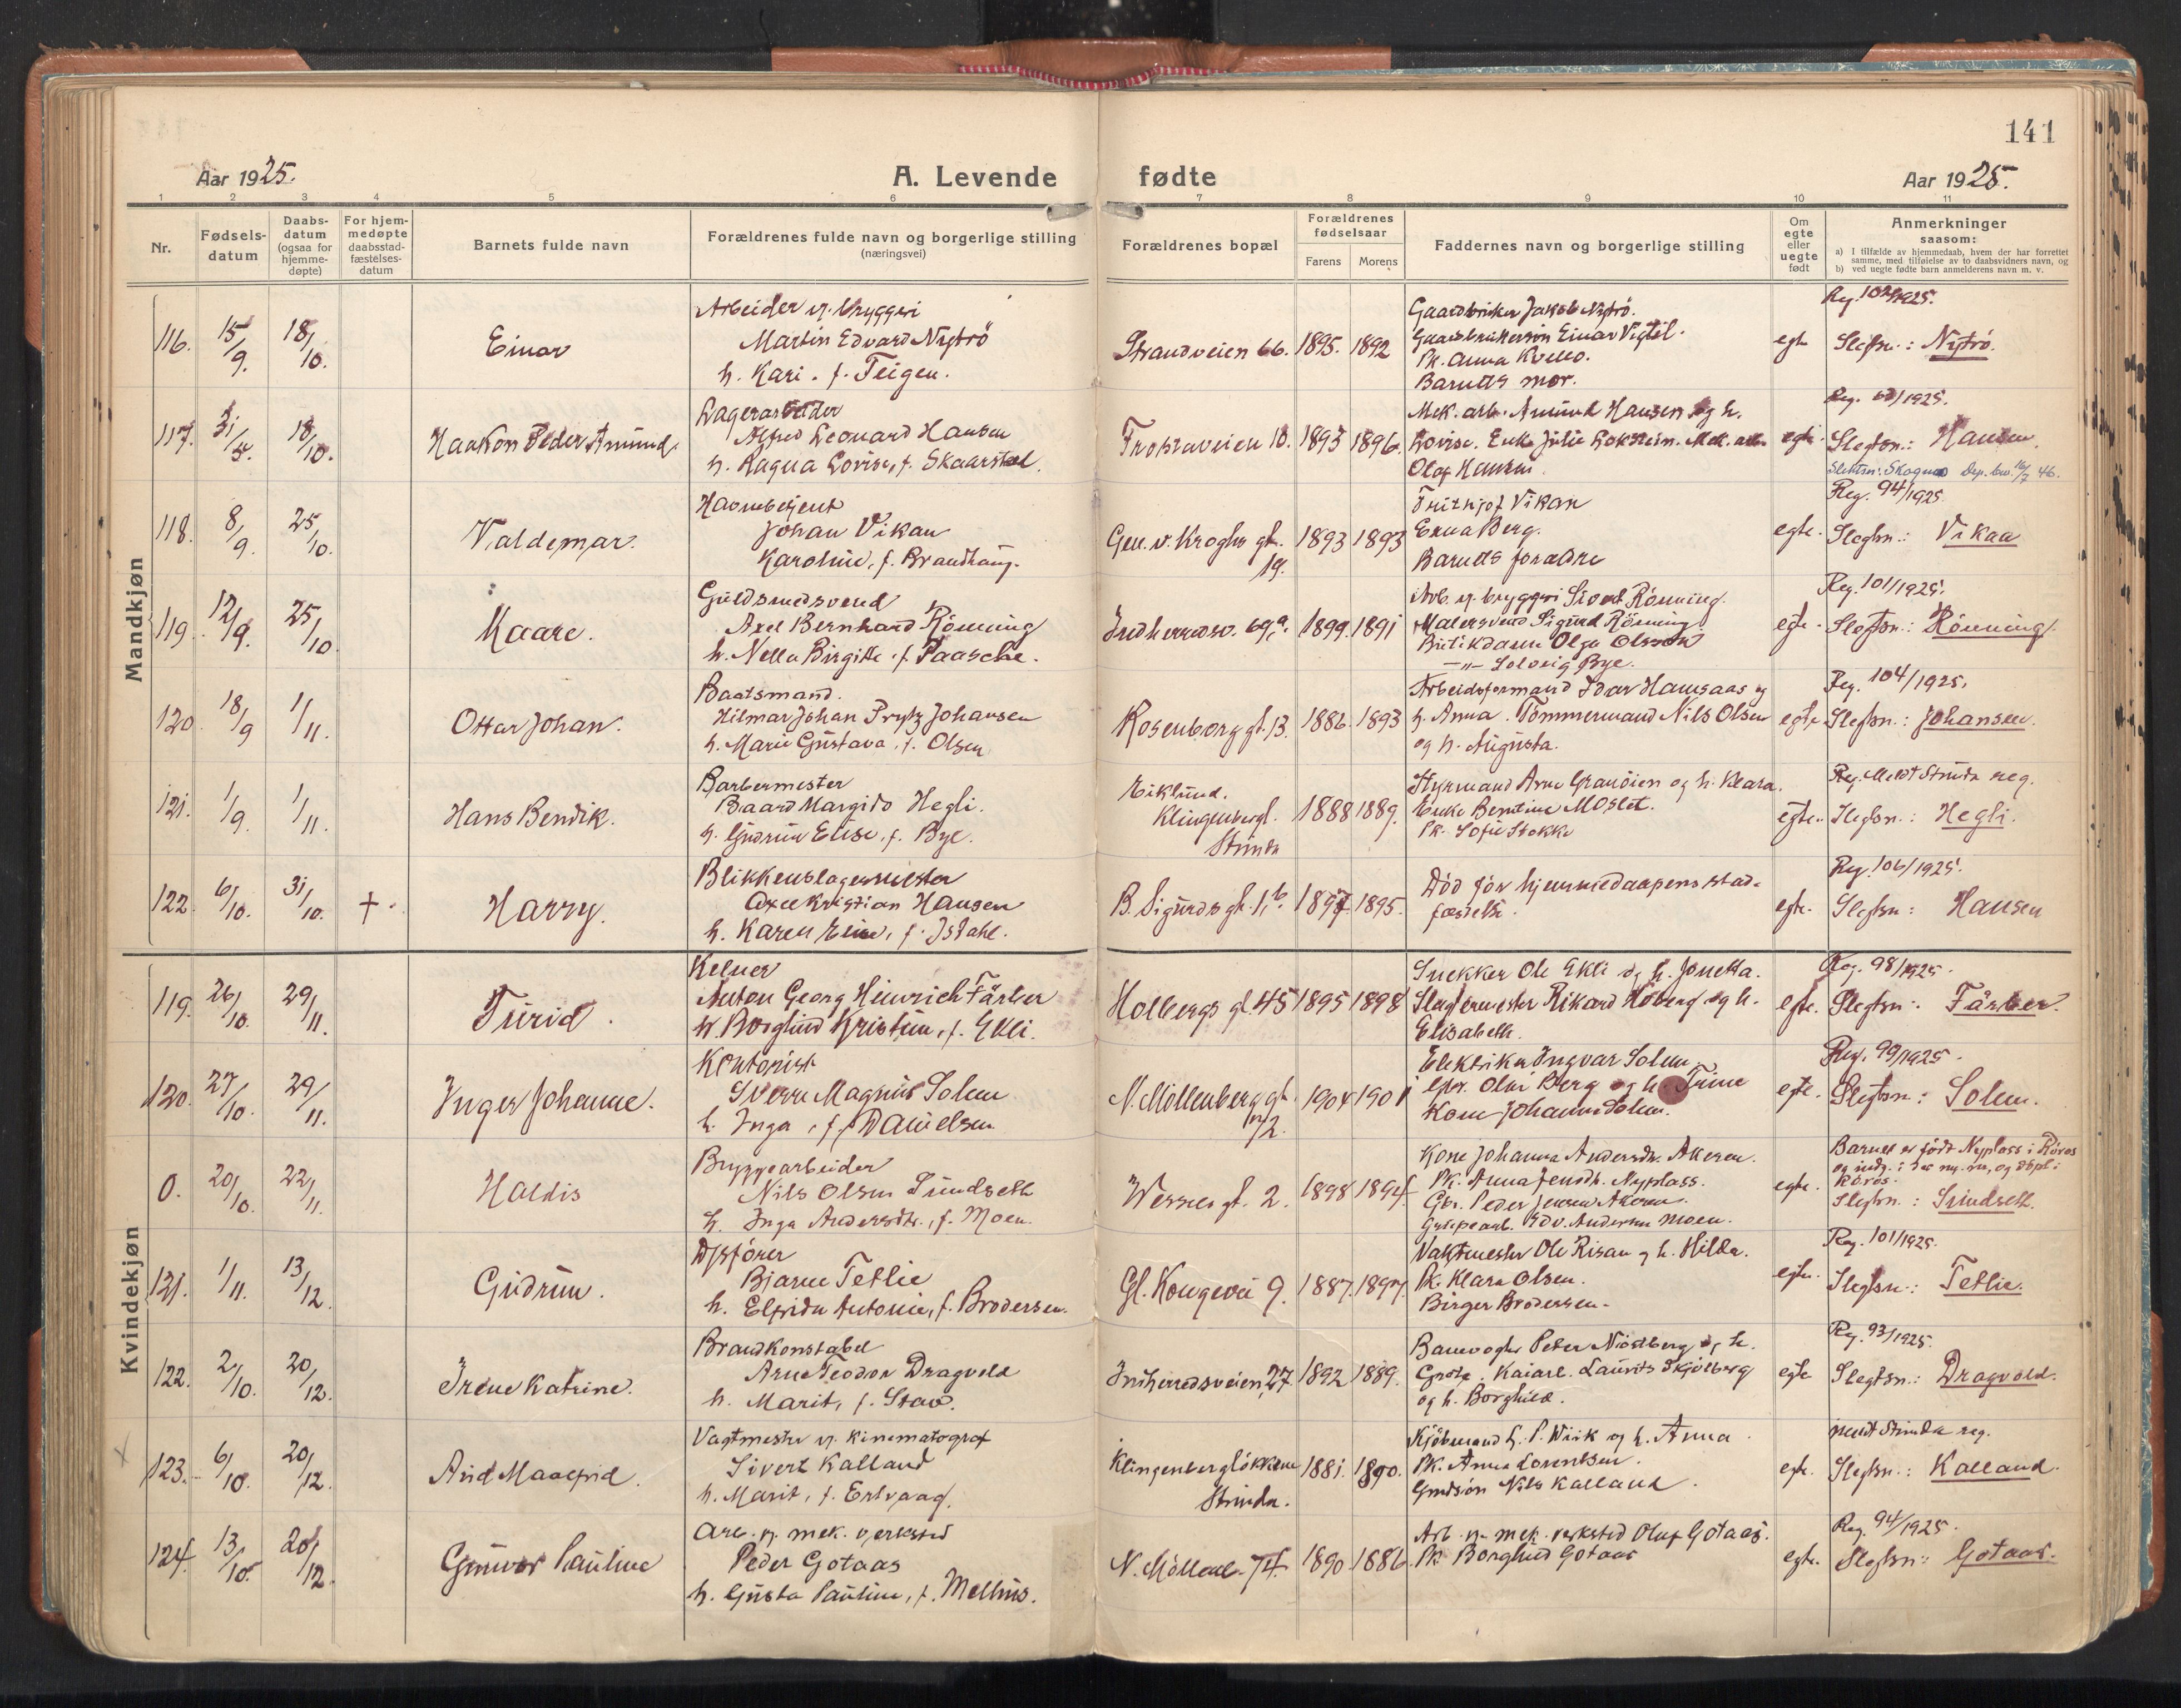 141
Aar 1925.
A. Levende fødte
Aar 1925.
1 2 3 4 5 6 7 8 9 10 11
Nr.
Fødsels-
datum
Daabs-
datum
(ogsaa for
hjemme-
døpte)
For hjem-
medøpte
daabsstad-
fæstelses-
datum
Barnets fulde navn
Forældrenes fulde navn og borgerlige stilling
(næringsvei)
Forældrenes bopæl
Forældrenes
fødselsaar
Farens Morens
Faddernes navn og borgerlige stilling
Om
egte
eller
uegte
født
Anmerkninger
saasom:
a) I tilfælde av hjemmedaab, hvem der har forrettet
samme, med tilføielse av to daabsvidners navn, og
b) ved uegte fødte barn anmelderens navn m. v.
Mandkjøn
116. 15/9. 18/10.
Einar
Arbeider v. bryggeri
Martin Edvard Nytrö
h. Kari. f. Teigen.
Strandveien 66. 1895. 1892
Gaardbruker Jakob Nytrö.
Gaardbrukersön Einar Vigtil.
Pk. Anna Kvello.
Barnets mor.
egte
Reg. 102/1925.
Slegtsn.: Nytrö.
117. 31/5. 18/10.
Haakon Peder Amund.
Lagerarbeider
Alfred Leonard Hansen
h. Ragna Lovise, f. Skaarstøl.
Frostaveien 10. 1893 1896.
Mek. arb. Amund Hansen og h.
Lovise. Enke Julie Lokstein. Mek. arb.
Olaf Hansen.
egte.
Reg. /1925.
Slegtsn.: Hansen.
Slektsn.: Skogmo Dep. bev. 16/7 46.
118. 8/9. 25/10.
Valdemar.
Havnebetjent
Johan Vikan
Karoline, f. Brandhaug.
Gen. v. Kroghs gt.
19.
1893 1893
Frithjof Vikan
Erna Berg.
Barnets foraldre
egte.
Reg. 94/1925
Slegtsn.: Vikan
119. 12/9. 25/10.
Kaare.
Guldsmedsvend
Axel Bernhard Rönning
h. Nella Birgitte. f. Paasche.
Indherredsv. 69a. 1899. 1891
Arb. v. bryggeri Sivert Rönning.
Malersvend Sigurd Rönning
Butikdame Olga Olsson
—"— Solveig Bye.
egte.
Reg. 101/1925.
Slegtsn.: Rönning.
120. 18/9 1/11.
Ottar Johan.
Baatsmand.
Hilmar Johan Prytz Johansen
h. Marie Gustava, f. Olsen
Rosenborg gt. 13. 1886. 1893
Arbeidsformand Idar Hamsaas og
h. Anna. Tömmermand Nils Olsen
og h. Augusta.
egte
Reg. 104/1925.
Slegtsn.: Johansen.
121. 1/9. 1/11.
Hans Bendik.
Barbermester
Baard Margido Hegli.
h. Gudrun Elise, f. Bye.
Eiklund.
Klingenbergl.
Strinda
1888 1889.
Styrmand Arne Granöien og h. Klara.
Enke Berntine Moslet.
Pk. Sofie Stokke
egte.
Reg. Meldt Strinda reg.
Slegtsn.: Hegli.
122. 6/10. 31/10. †.
Harry.
Blikkenslagermester
Axel Kristian Hansen
h. Karen Eline, f. Isdahl.
B. Sigurds gt. 1,b. 1897 1895.
Död för hjemmedaapens stad-
festelse.
egte.
Reg. 106/1925.
Slegtsn: Hansen
Kvindekjøn
119. 26/10. 29/11.
Turid.
Kelner
Anton Georg Heinrich Färber
h. Borghild Kristine, f. Ekli.
Holbergs gt. 45 1895 1898
Snekker Ole Ekli og h. Jonetta.
Slagtermester Rikard Hoberg og h.
Elisabeth.
egte.
Reg. 98/1925.
Slegtsn: Färber.
120. 27/10. 29/11.
Inger Johanne.
Kontorist
Sverre Magnus Solem
h. Inga, f. Danielsen
N. Möllenberg gt.
72.
1904 1901
Elektriker Ingvar Solem.
Gbr. Olav Berg og h. Trine
Kone Johanna Solem.
egte.
Reg. 99/1925.
Slegtsn: Solem.
0. 20/10. 22/11.
Haldis
Bryggearbeider
Nils Olsen Sundseth
h. Inga Andersdtr., f. Moen.
Wessels gt. 2. 1898 1894
Kone Johanna Andersdtr. Akeren.
Pk. Anna Jensdtr. Nyplass.
Gbr. Peder Jensen Akeren.
Grubearb. Edv. Andersen Moen.
egte.
Barnet er født Nyplass i Röros
og indg. i der nr., og dspl.:
Röros.
Slegtsn.: Sundseth.
121. 1/11. 13/12.
Gudrun.
Bjarne Tetlie
h. Elfrida Antonie, f. Brodersen.
Gl. Kongevei 9. 1887. 1897.
Vaktmester Ole Risan og h. Hilda.
Pk. Klara Olsen.
Birger Brodersen.
egte.
Reg. 101/1925.
Slegtsn.: Tetlie.
122. 2/10. 20/12.
Irene Katrine.
Brandkonstabel
Arne Teodor Dragvold
h. Marit, f. Stav.
Indherredsveien 27. 1892 1889.
Banevogter Peter Nöstberg og h.
Grete. Kaiarb. Laurits Skjölberg
og h. Borghild.
egte
Reg. 93/1925.
Slegtsn.: Dragvold.
X
123. 6/10. 20/12.
Arid Maalfrid.
Vagtmester v. kinematograf
Sivert Kalland
h. Marit, f. Ertvaag.
Klingenberglökken
Strinda.
1881. 1890.
Kjöbmand L. P. Wiik og h. Anna.
Pk. Anna Lorentsen.
Grundsön Nils Kalland.
egte.
meldt Strinda reg.
Slegtsn.: Kalland.
124. 13/10. 20/12.
Gunvor Pauline
Arb. v. mek. verksted
Peder Gotaas
h. Gusta Pauline, f. Melhus.
N. Möllenb. 74. 1890 1886.
Arb. v. mek. verksted Oluf Gotaas.
Pk. Borghild Gotaas
egte.
Reg. 94/1925.
Slegtsn: Gotaas.